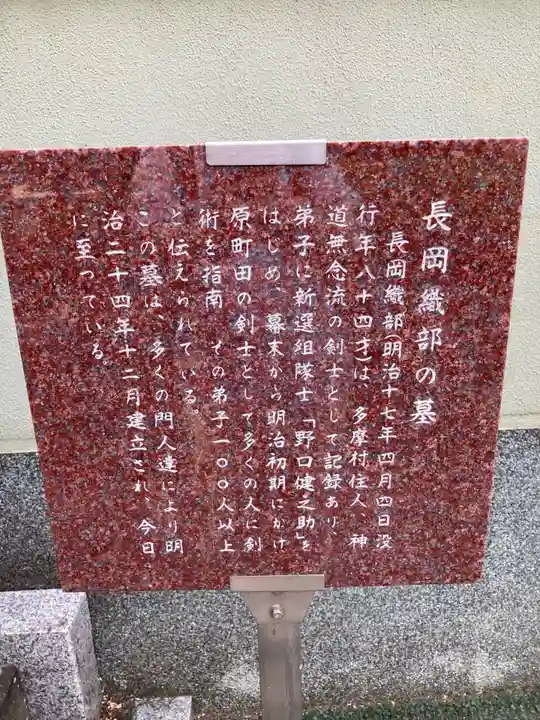 長岡織部の墓
長岡織部(明治十七年四月四日没
行年八十四才)は、多摩村住人、神
道無念流の剣士として記録あり
弟子に新選組隊士「野口健之助」を
はじめ、幕末から明治初期にかけ
原町田の剣士として多くの人に剣
術を指南 その弟子一〇〇人以上
と伝えられている
この墓は、多くの門人達により明
治二十四年十二月建立され、今日
に至っている。